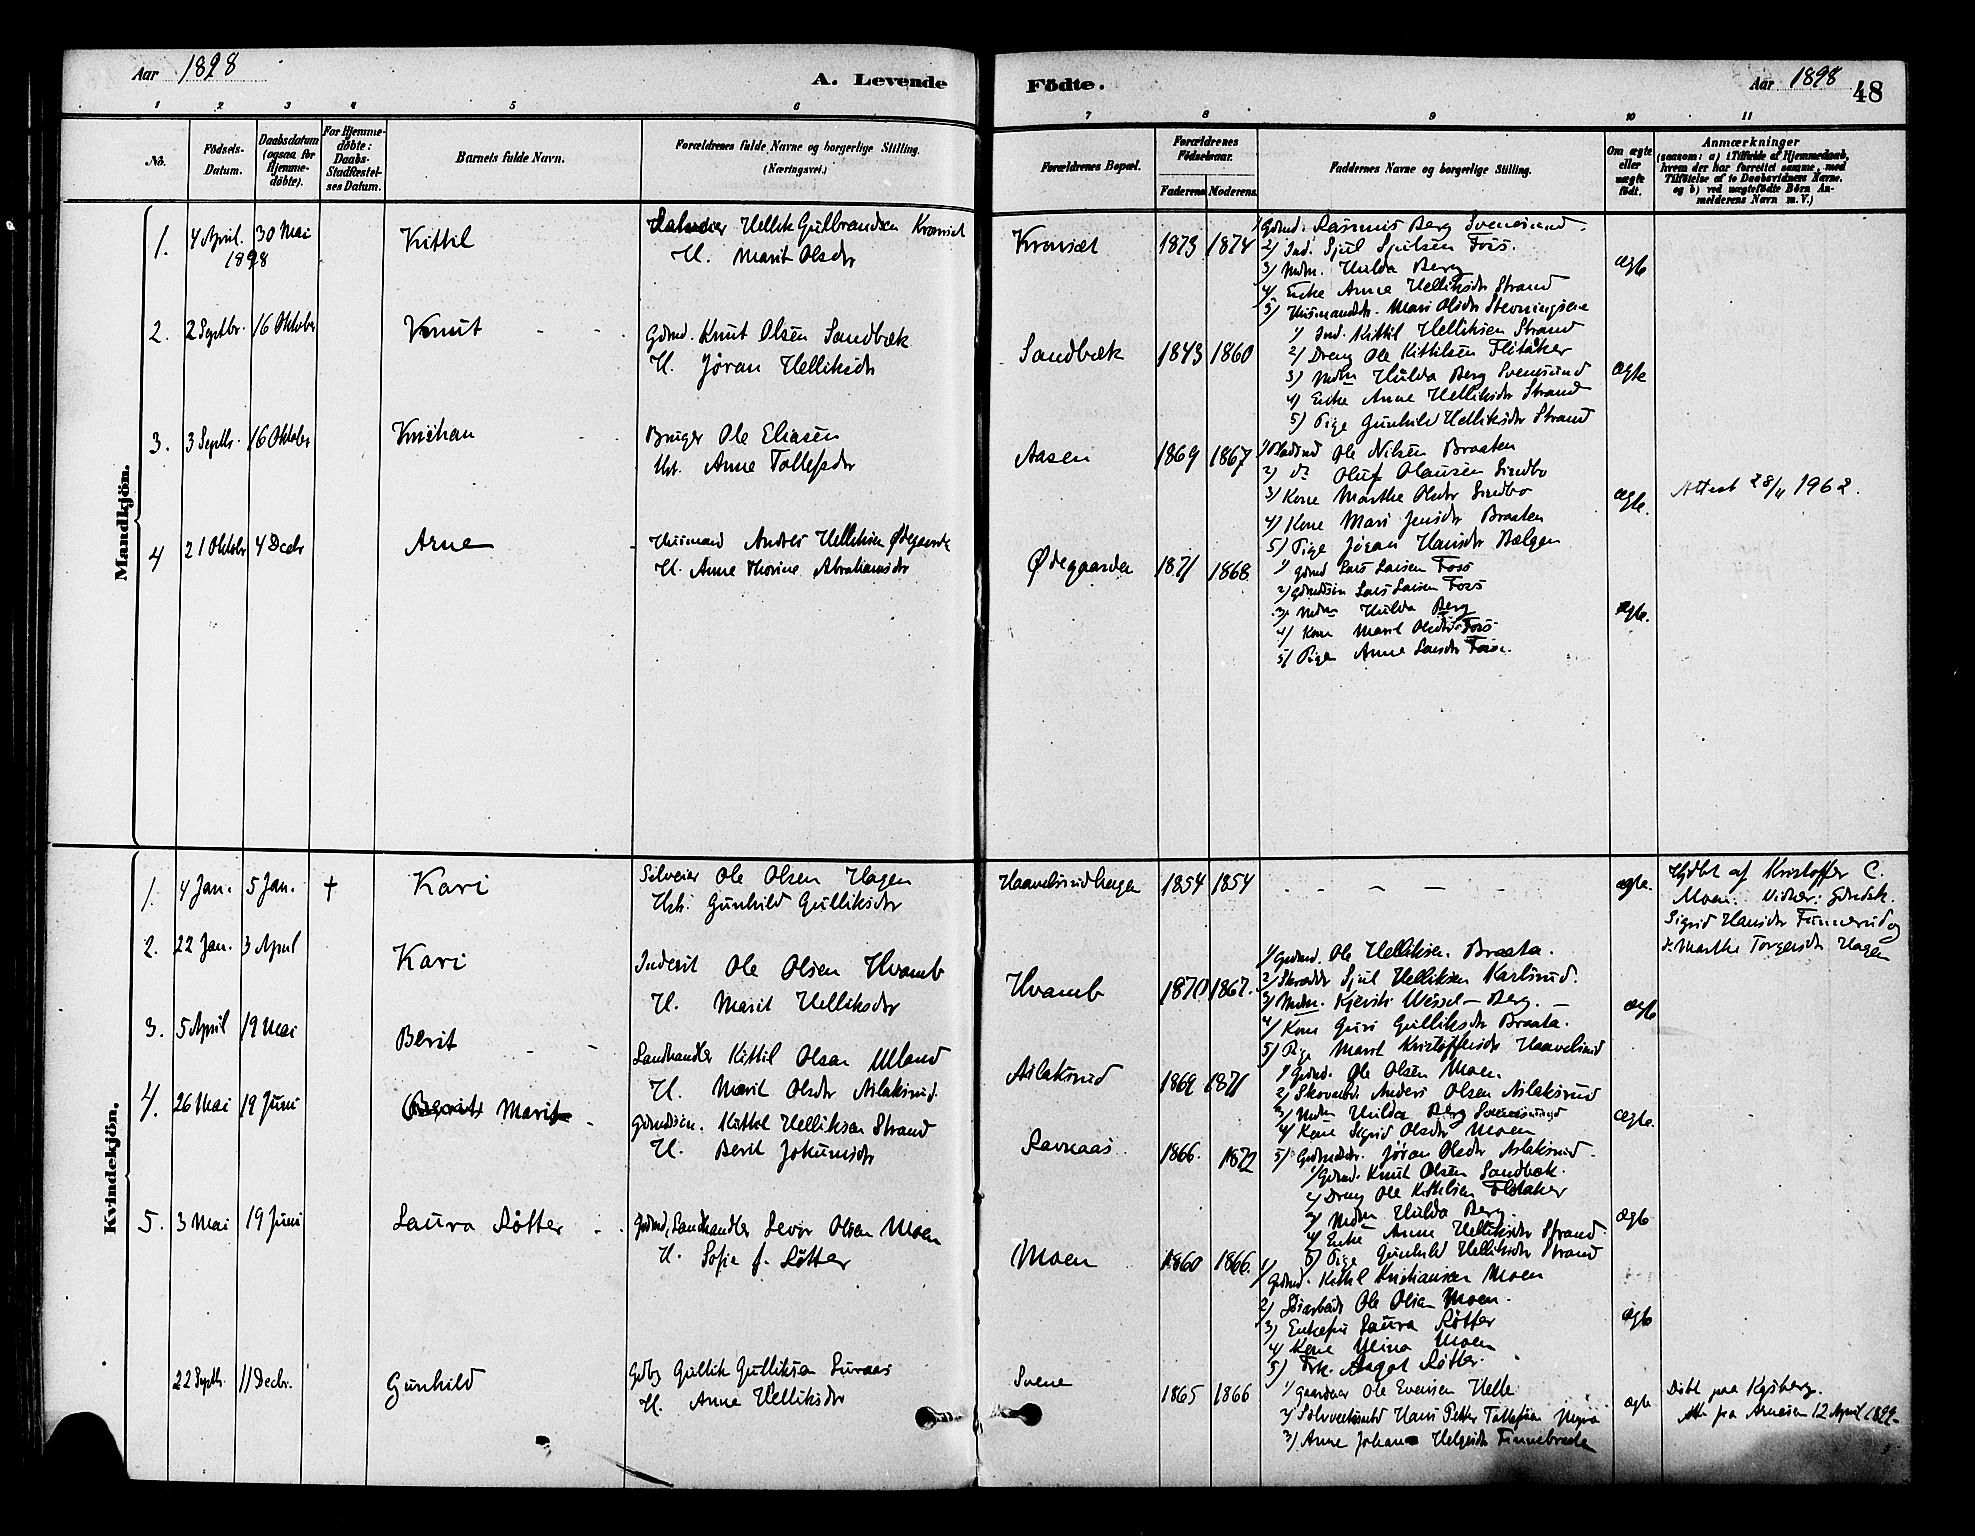 Aar 1898
A. Levende
Födte.
Aar 1898
48
1 2 3 4 5 6 7 8 9 10 11
No.
Födsels-
Datum.
Daabsdatum
(ogsaa for
Hjemme-
döbte).
For Hjemme-
döbte:
Daabs-
Stadfæstel-
ses Datum.
Barnets fulde Navn.
Forældrenes fulde Navne og borgerlige Stilling.
(Næringsvei.)
Forældrenes Bopæl.
Forældrenes
Födselsaar.
Faderens Moderens
Faddernes Navne og borgerlige Stilling.
Om ægte
eller
uægte
födt.
Anmærkninger
(saasom: a) i Tilfælde af Hjemmedaab,
hvem der har forrettet samme, med
Tilföielse af to Daabsvidners Navne.
og b) ved uægtefödte Börn An-
melderens Navn m. V.)
Mandkjön.
1. 4 April 30 Mai
1898
Kittil
Hellik Gulbrandsen Kravset
H. Marit Olsdr
Kravset 1873 1874
1) Gdmd. Rasmus Berg Svenesund
2) Ind. Sjul Sjulsen Foss.
3) Mdm. Hulda Berg
4) Enke Anne Helliksdr Strand
5) Husmandsdr. Mari Olsdr
ægte
2. 2 Septbr. 16 Oktober
Knut
Gdmd. Knut Olsen Sandbæk
H. Jøran Helliksdr
Sandbæk 1843 1860
1) Ind. Kittil Helliksen Strand
2) Dreng Ole Kittilsen Flitaker
3) Mdm Hulda Berg Svenesund
4) Enke Anne Helliksdr Strand
5) Pige Gunhild Helliksdr Strand
ægte
3. 3 Septbr. 16 Oktober
Kristian
Bruger Ole Eliasen
Hst. Anne Tollefsdr
Aasen 1869 1867
1) Ole Nilsen Braaten
2) do Oluf Olausen Sindbo
3) Kone Marthe Olsdr Sindbo
4) Kone Mari Jensdr Braaten
5) Pige Jøran Hansdr Bælgen
ægte.
Attest 28/11 1962.
4 21 Oktober 4 Decbr
Arne
Husmand Andres Helliksen Ødegaarde
H. Anne Thorine Abrahamsdr
Ødegaarden 1871 1868
1) Gdmd Lars Larsen Foss
2) Gdmdsøn Lars Larsen Foss
3) Mdm Hulda Berg
4) Kone Marit Olsdr Foss
5) Pige Anne Larsdr Foss
ægte.
Kvindekjön.
1. 4 Jan. 5 Jan. +
Kari
Selveier Ole Olsen Hagen
Hst. Gunhild Gulliksdr
Haavelsrudhagen 1854 1854
ægte.
Hjdbt af Kristoffer C.
Moen. Vidner: Gdmdsk.
Sigrid Hansdr Finnerud og
do Marthe Torgersdr Hagen
2. 22 Jan. 3 April
Kari
Inderst Ole Olsen Hvamb
H. Marit Helliksdr
Hvamb 1870 1867.
1) Gdmd. Ole Helliksen Braata.
2) Skrædder Sjul Helliksen Karlsrud.
3) Mdm. Kjersti Wessel-Berg.
4) Kone Guri Gulliksdr Braata.
5) Pige Marit Kristoffersdr Haavelsrud
ægte
3. 5 April 19 Mai
Berit
Landhandler Kittil Olsen Ulland
H. Marit Olsdr Aslaksrud.
Aslaksrud 1869 1871
1) Gdmd. Ole Olsen Moen.
2) Anders Olsen Aslaksrud
3) Mdm Hulda Berg Svenesund
4) Kone Sigrid Olsdr Moen
5) Gdmdsdr. Jøran Olsdr Aslaksrud.
ægte.
4. 26 Mai 19 Juni
(Berit) Marit
Gdmdsøn. Kittil Helliksen Strand
H. Berit Jokumsdr
Ravnaas 1866. 1872
1) Gdmd. Knut Olsen Sandbæk.
2) Dreng Ole Kittilsen Flitaker
3) Mdm Hulda Berg.
4) Enke Anne Helliksdr Strand
5) Pige Gunhild Helliksdr Strand
ægte
5. 3 Mai 19 Juni
Laura Røtter
Gdmd, Landhandler Sevor Olsen Moen
H. Sofie f. Røtter
Moen 1860 1866.
1) Gdmd. Kittil Kristiansen Moen
2) Ole Olsen Moen.
3) Enkefru Laura Røtter
4) Kone Moen
5) Frk. Aagot Røtter.
ægte
22 Septbr. 11 Decbr.
Gunhild
Gdbg Gullik Gulliksen Suraas
H. Anne Helliksdr
Svene 1865 1866
1) Gaardeier Ole Evensen Helle
2) Hans Petter Tollefsen Myra
3) Anne Johanne Helgesdr Finnebraaten
ægte
Døbt paa Kgsberg.
Att. fra 12 April 1899.